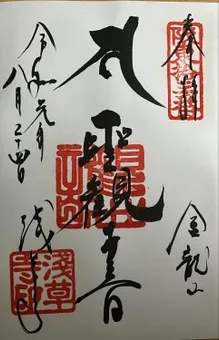 奉拝
金龍山
聖観世音
令和元年
八月二十四日
浅草寺
淺草
寺印